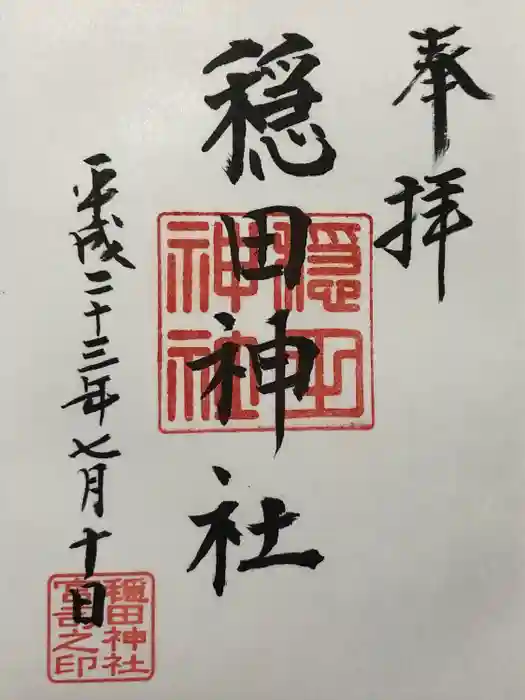 奉拝
穏田神社
穏田
神社
平成二十三年七月十日
穏田神社
宮司之印